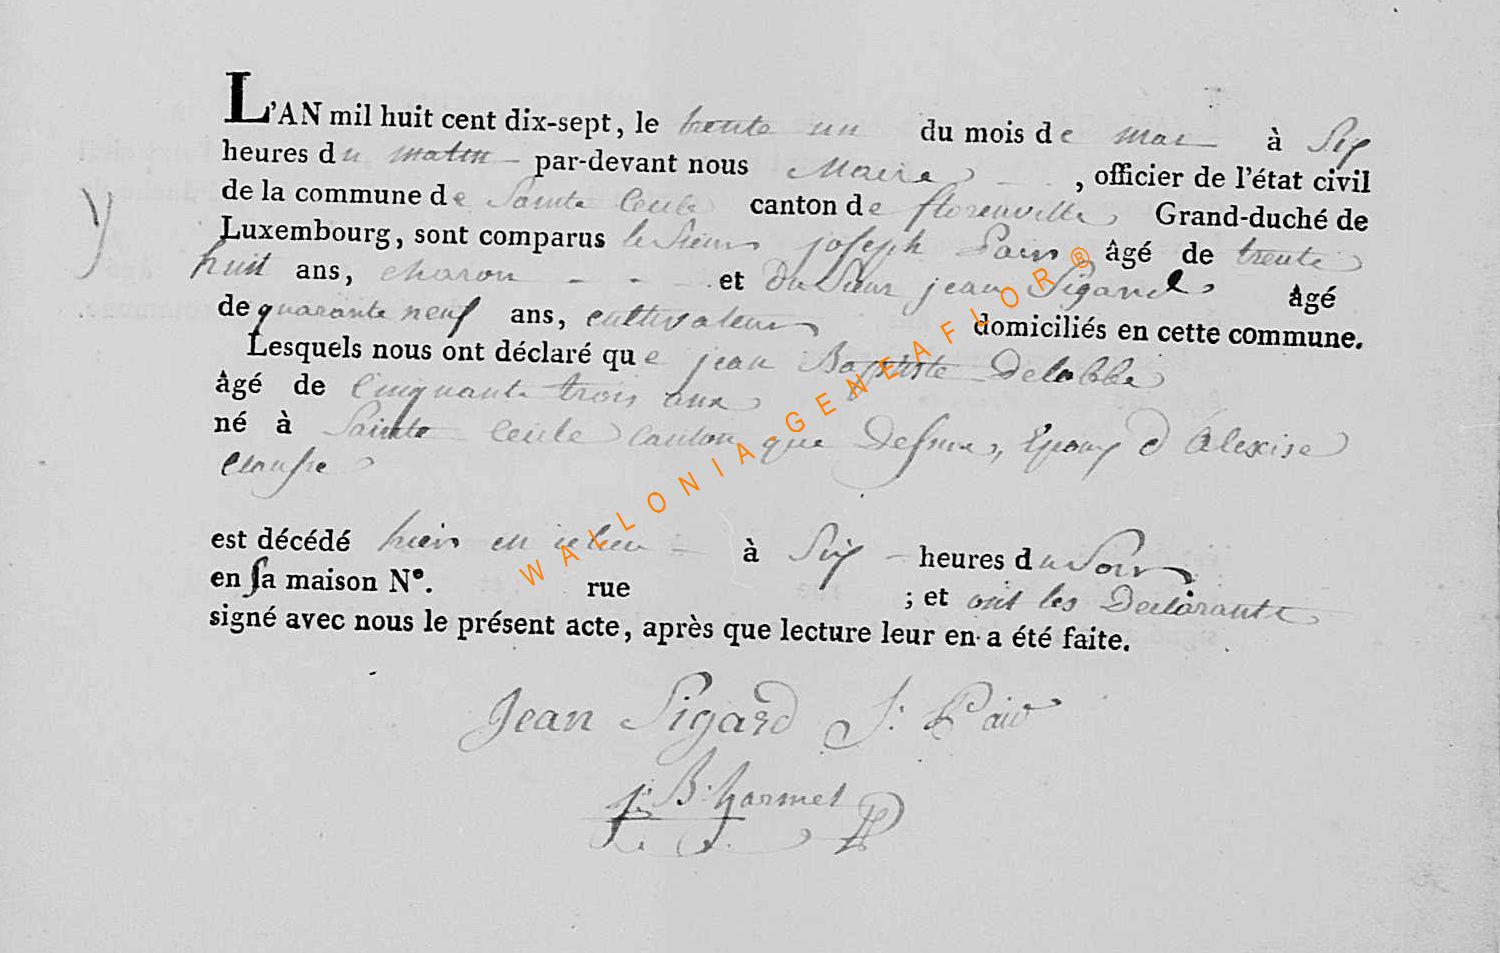 L'AN mil huit cent dix-sept, le trente un du mois de mai à Six
heures du matin par-devant nous Maire, officier de l'état civil
de la commune de Sainte Cecile canton de florenville, Grand-duché de
Luxembourg, sont comparus le Sieur joseph Pairo âgé de trente
huit ans, charon et du Sieur jean Sigard âgé
de quarante neuf ans, cultivateur domiciliés en cette commune.
Lesquels nous ont déclaré que jean Baptiste Delabbe
âgé de Cinquante trois ans
né à Sainte Cecile Canton que Dessus, Epoux d Alexise
est décédé hier en ce lieu à Six heures du Soir
en sa maison N°. rue ; et ont les Declarants
signé avec nous le présent acte, après que lecture leur en a été faite.
Jean Sigard J: Pairo
j: B: harmel
WALLONIA-GENEAFLOR®